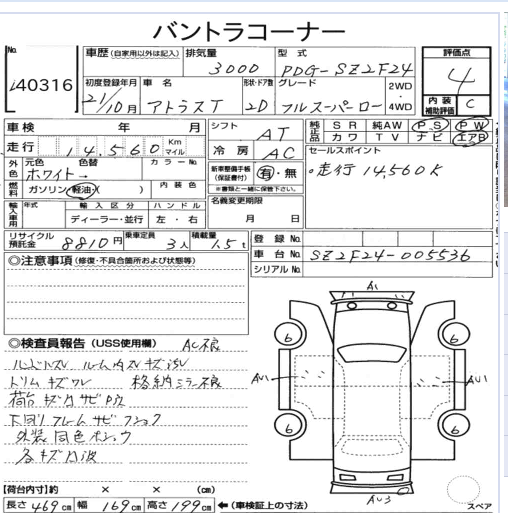 バントラコーナー
No.
40316
車歴(自家用以外は記入)
排気量
3000
型式
PDG-SZ2F24
評価点
4
初度登録年月
21/10月
車名
アトラスT
形状・ドア数
2D
グレード
フルスーパーロー
2WD
4WD
内装
補助評価
C
車検 年 月
走行
14,560
Km
マイル
シフト
AT
純正品
SR 純AW PS PW
カワ TV ナビ エアB
外色
元色 色替
ホワイト→
カラーNo.
冷房
AC
セールスポイント
・走行 14,560K
燃料
ガソリン・軽油・( )
内装色
新車整備手帳
(保証書付)
有・無
※書類と一緒に保管下さい。
輸入車用
年式
輸入区分
ハンドル
ディーラー・並行
左・右
名義変更期限
月 日
リサイクル
預託金
8810円
乗車定員
3人
積載量
1.5t
登録No.
車台No.
SZ2F24-005536
シリアルNo.
◎注意事項(修復・不具合箇所および状態等)
◎検査員報告(USS使用欄)
AC不良
ルーム内
トリムキズワレ
格納ミラー不良
荷台キズ凹サビ
下回りフレームサビ
外装同色
各キズ凹波
A1
AU1
AU1
6
6
6
6
AU3
スペア
【荷台内寸】約 × × (cm)
長さ469cm 幅169cm 高さ199cm ←(車検証上の寸法)